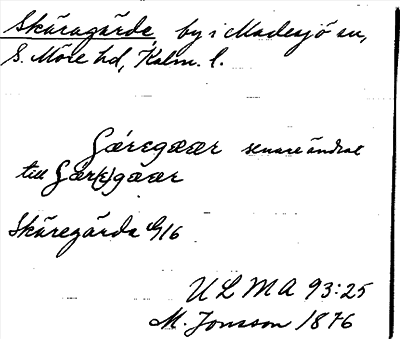 Skäragärde, by i Madesjö sn,
S. Möre hd, Kalm. l.
senare ändrat
till
Skäregärda G16
ULMA 93:25
M. Jonsson 1876